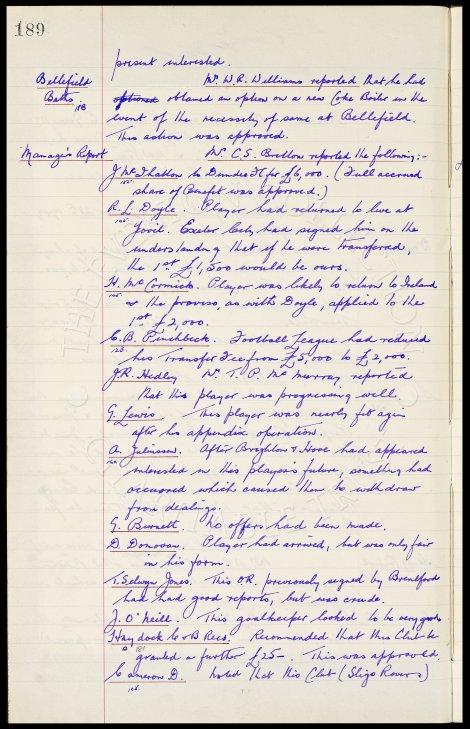 189
present interested.
Bellefield Mr. W.R. Williams reported that he had
Baths optioned obtained an option on a new Coke Boiler in the
118
event of the necessity of same at Bellefield.
This action was approved.
Manager's Report Mr. C.S. Britton reported the following:-
J McIlhatton to Dundee FC for £6,000. (Full accrued
share of Benefit was approved.)
R.L. Doyle. Player had returned to live at
Yeovil. Exeter City had signed him on the
understanding that if he were transferred,
the 1st £1,500 would be ours.
H. McCormick. Player was likely to return to Ireland
& the proviso, as with Doyle, applied to the
1st £2,000.
C.B. Pinchbeck. Football League had reduced
123
his Transfer Fee from £5,000 to £2,000.
J.R. Hedley Mr. T.P. McMurray reported
that this player was progressing well.
G. Lewis. This player was nearly fit again
after his appendix operation.
A. Juliussen. After Brighton & Hove had appeared
interested in this player's future, something had
occurred which caused them to withdraw
from dealings.
G. Burnett. No offers had been made.
D. Donovan. Player had arrived, but was only fair
in his form.
T. Selwyn Jones. This OR. previously signed by Brentford
had had good reports, but was crude.
J. O'Neill. This goalkeeper looked to be very good
Haydock C & B Recs. Recommended that this Club be
granted a further £25-. This was approved.
Cameron D. Noted that this Club (Sligo Rovers)